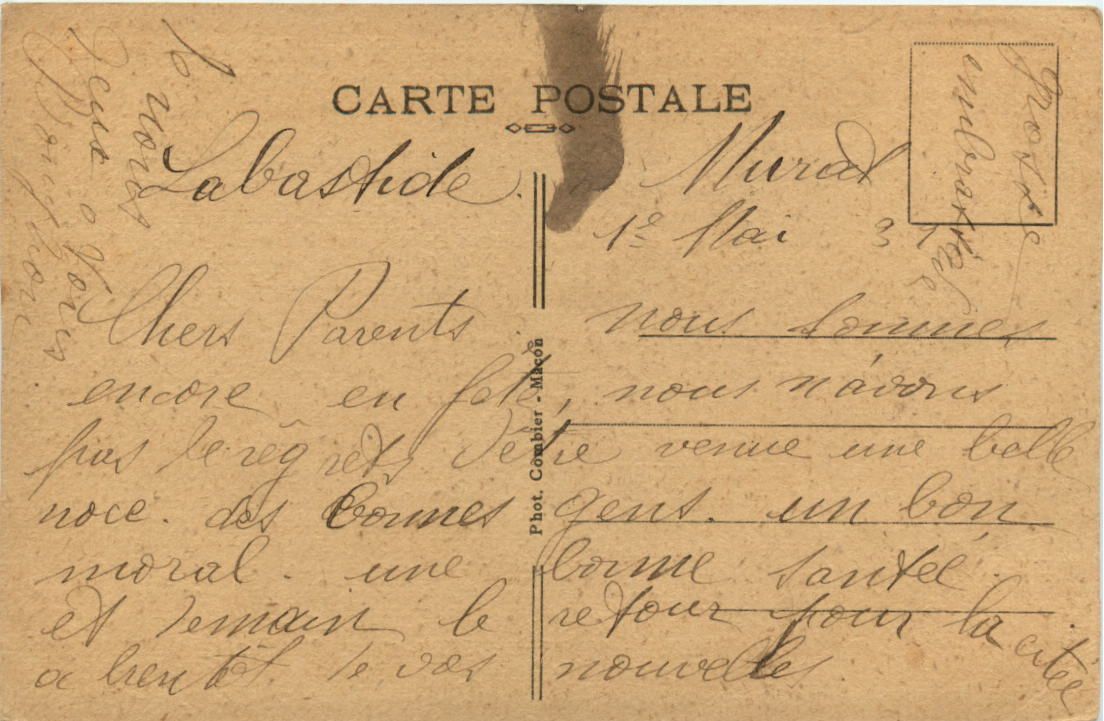 CARTE POSTALE
Labastide Murat
1º Mai 31
Chers Parents nous sommes
encore en fete, nous n'avons
pas le régrets d'etre venue une belle
noce. des bonnes gens. un bon
moral. une bonne santée.
et demain le retour pour la citée
a bientôt de vos nouvelles
Grosse
embrassée
a vous
deux
Phot. Combier - Macon